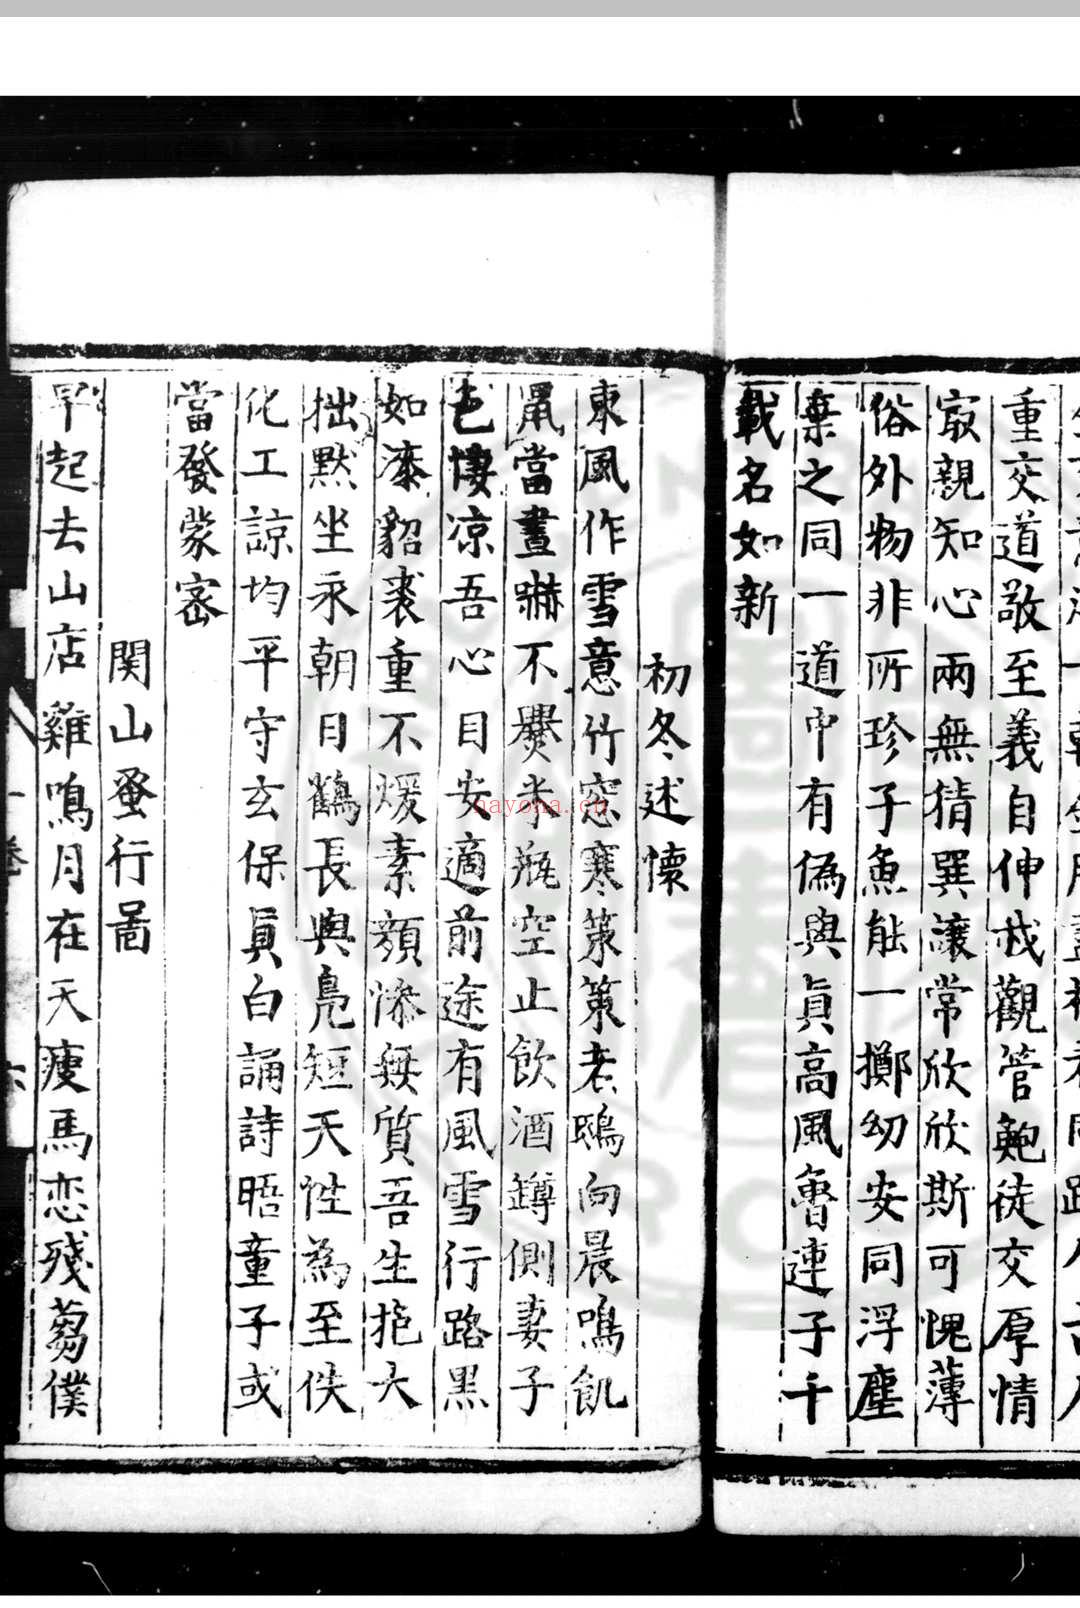 重交道敬至義自伸哉觀管鮑徒交厚情
冣親知心兩無猜巽讓常欣欣斯可愧薄
俗外物非所珍子魚能一擲幼安同浮塵
棄之同一道中有偽與眞高風魯連子千
載名如新
初冬述懷
東風作雪意竹窓寒策策老鴟向晨鳴飢
鼠當晝嚇不㸑米瓶空止飲酒罇側妻子
色悽凉吾心目安適前途有風雪行路黑
如漆貂裘重不煖素顏添無質吾生拖大
拙默坐永朝日鶴長與鳧短天性為至佚
化工諒均平守玄保眞白誦詩晤童子或
當發蒙宻
関山蚤行啚
早起去山店雞鳴月在天瘦馬恋殘芻僕
卷
六
nayona.cn